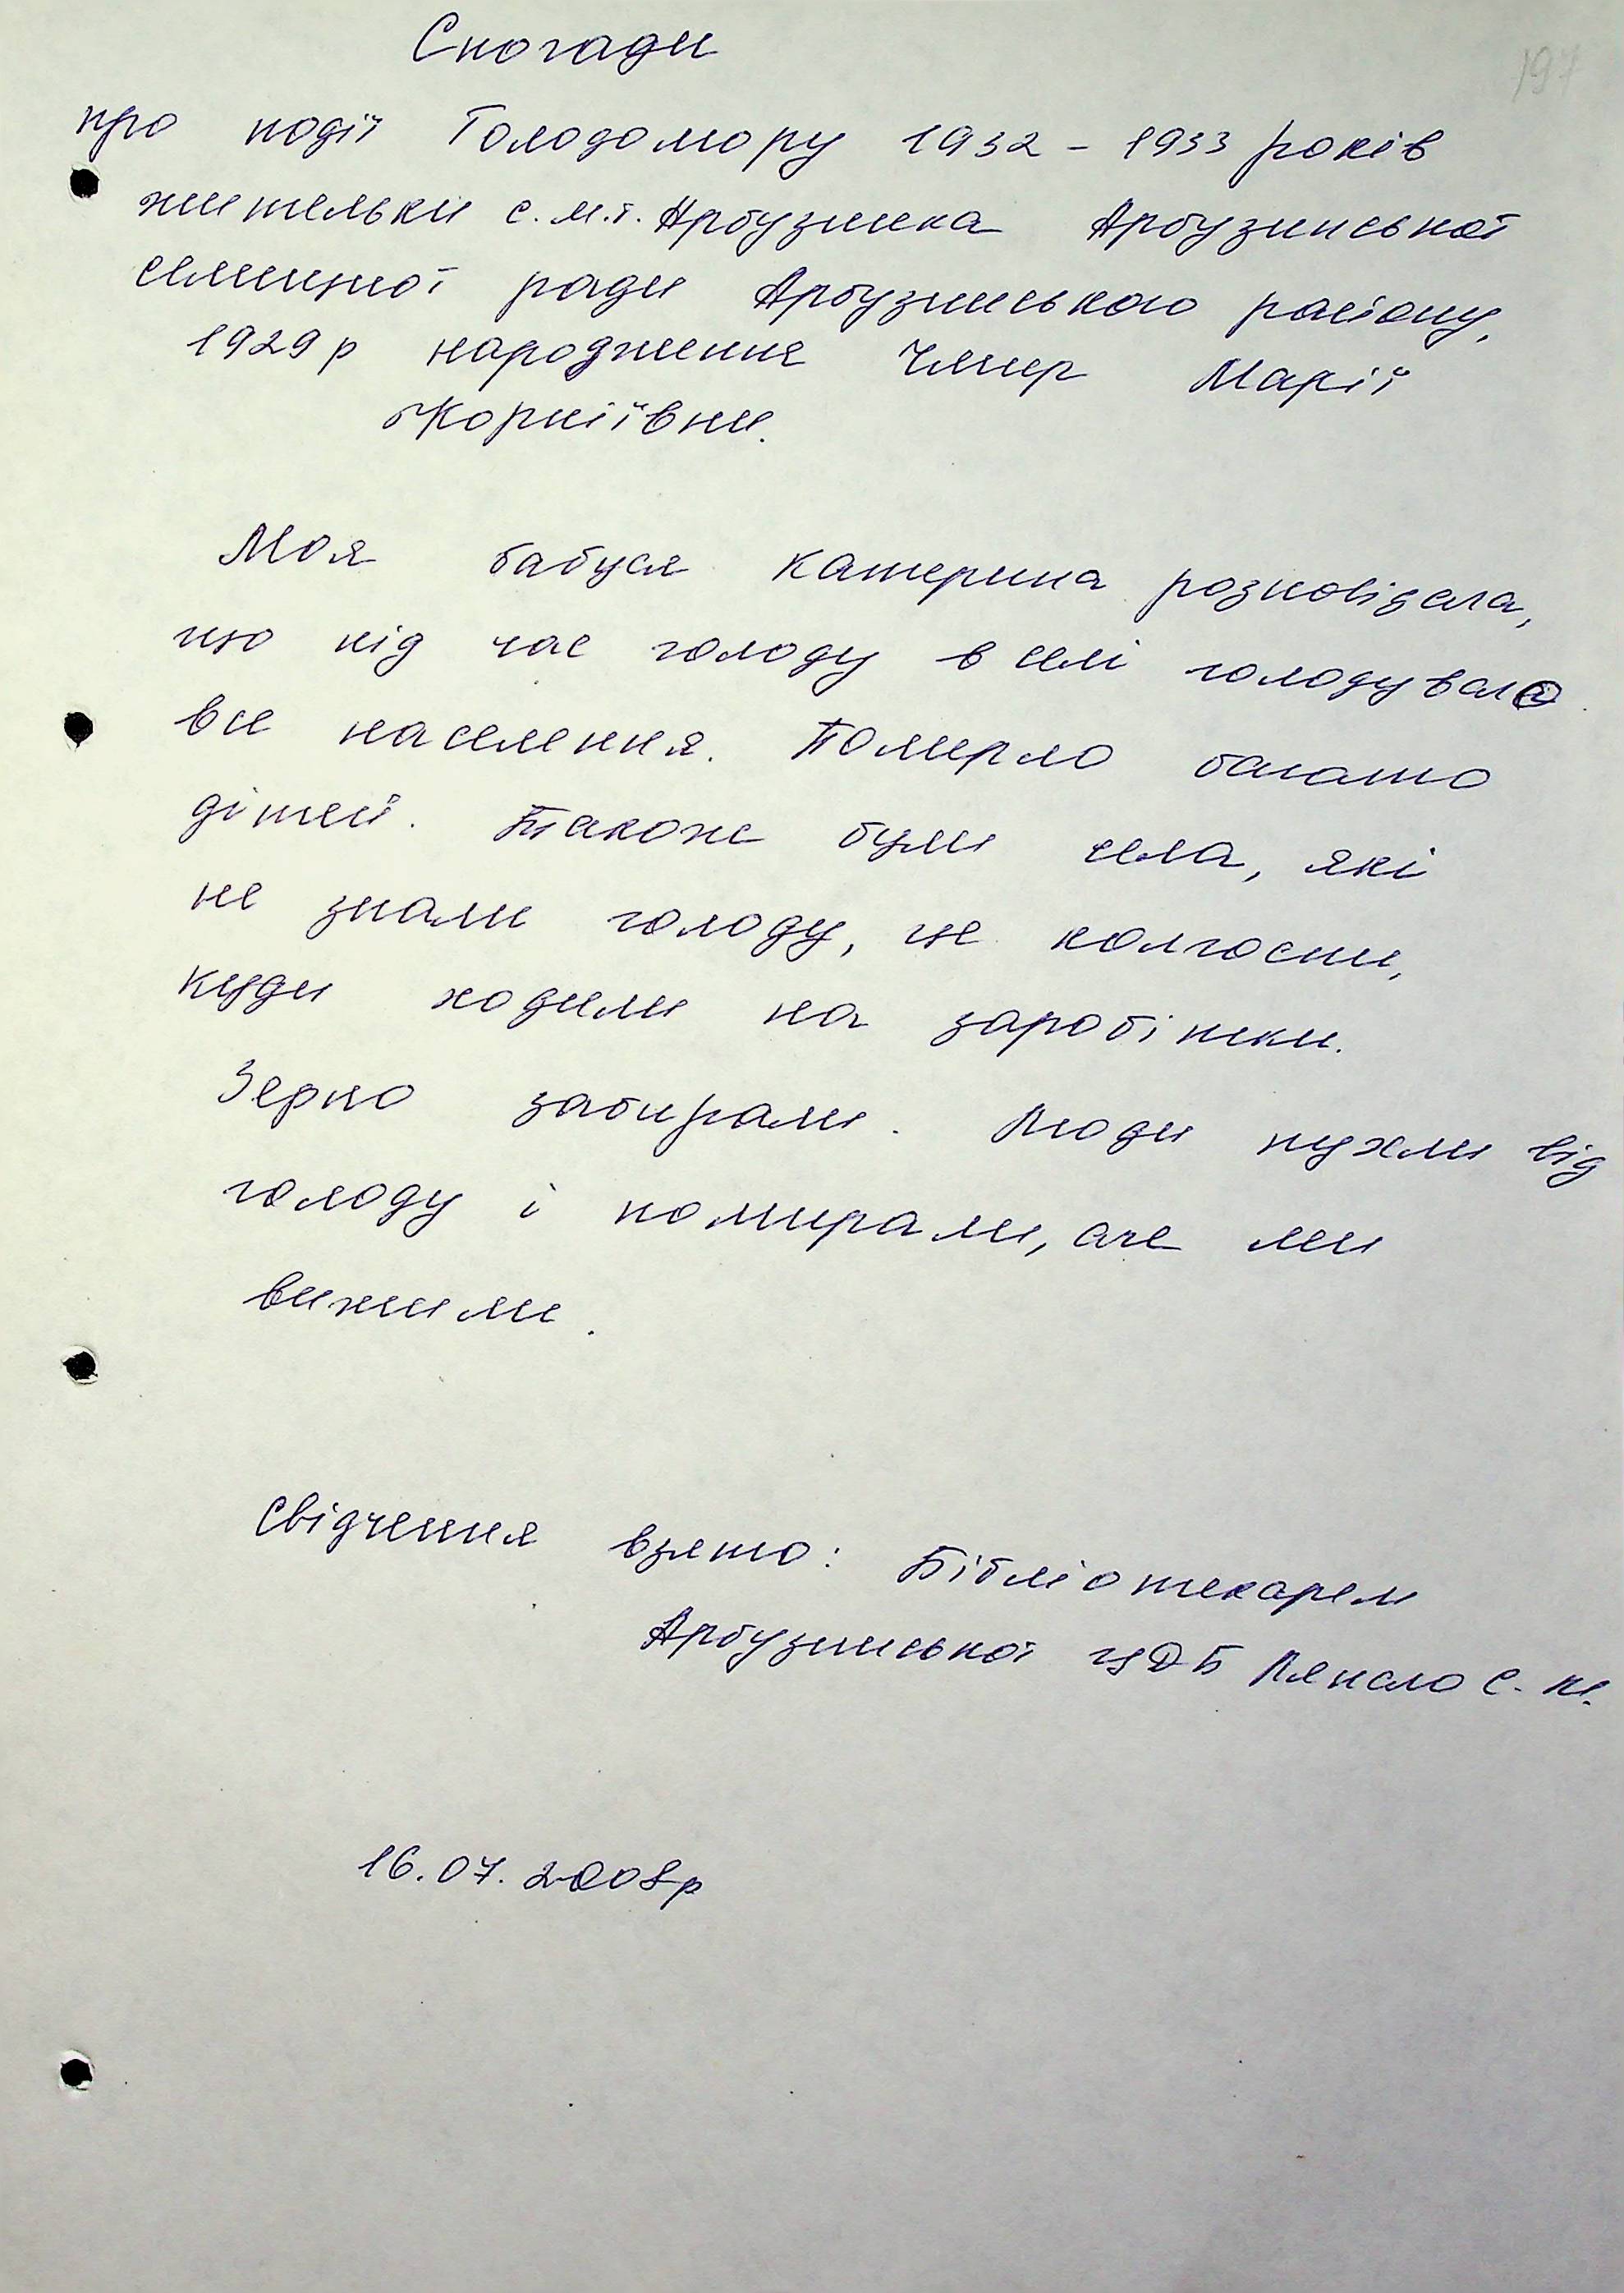 197
Спогади
про події Голодомору 1932 - 1933 років
жительки с.м.т. Арбузинка Арбузинської
селищної ради Арбузинського району,
1929 р народження Чмир Марії
Корніївни.
Моя бабуся Катерина розповідала,
що під час голоду в селі голодувало
все населення. Померло багато
дітей. Також були села, які
не знали голоду, це колгоспи,
куди ходили на заробітки.
Зерно забирали. Люди пухли від
голоду і помирали, але ми
вижили.
Свідчення взято: Бібліотекарем
Арбузинської ЦДБ С.
16.07.2008р